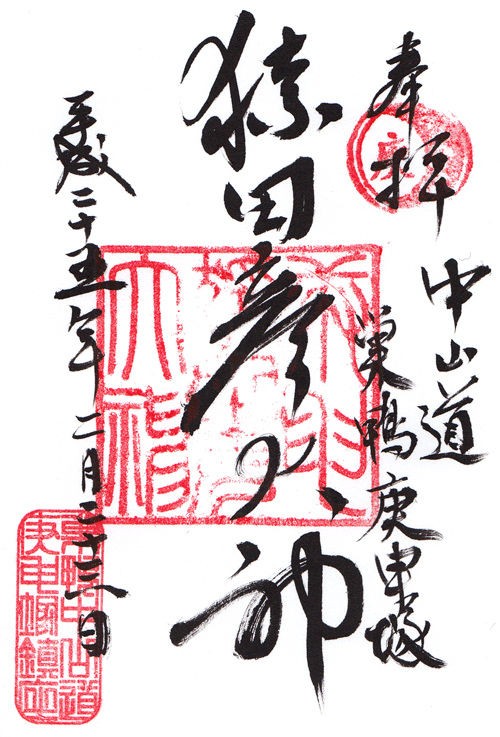 奉拝
中山道
巣鴨庚申塚
猿田彦大神
平成二十五年二月二十六日
巣鴨中仙道
庚申塚鎮座